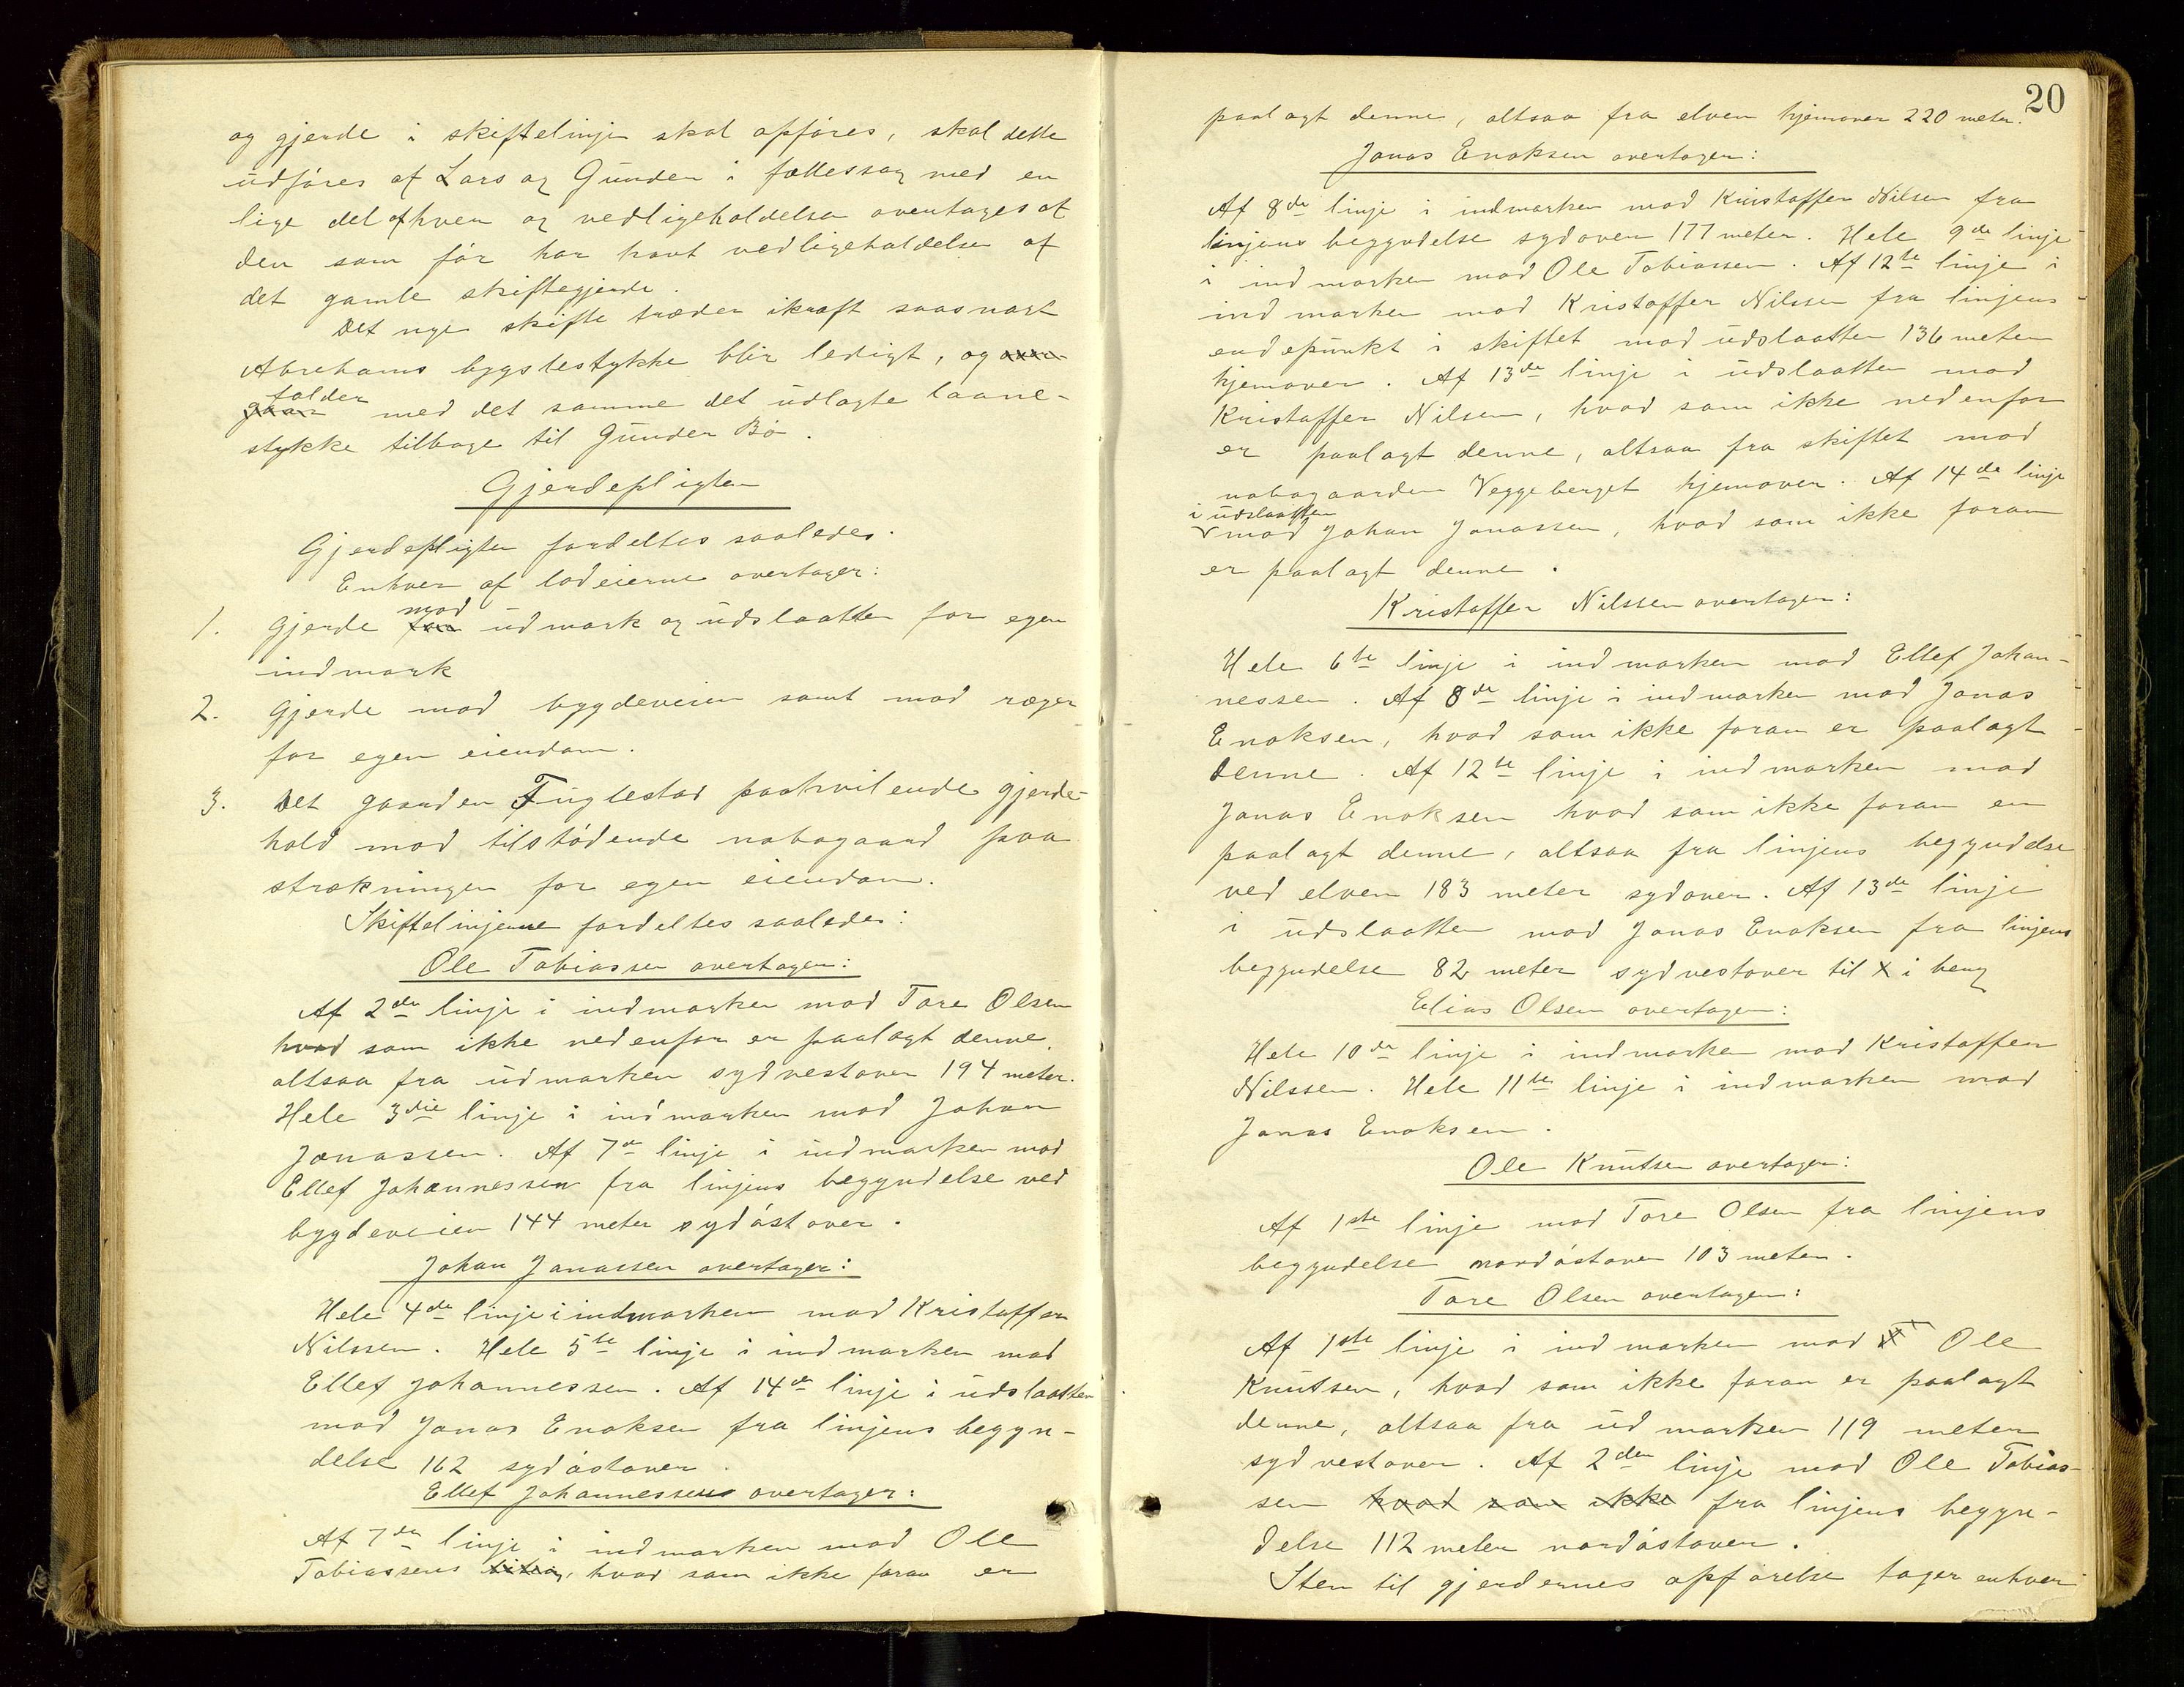 og gjerde i skiftelinje skal opføres, skal dette
udføres af Lars og Gunder i fællesskap med en
lige del af hver og vedligeholdelsen overtages af
den som før har havt vedligeholdelse af
det gamle skiftegjerde.
Det nye skifte træder ikraft saasnart
Abrehams bygslestykke blir ledigt, og
falder
gaar med det samme det udlagte laane-
stykke tilbage til Gunder Bø.
Gjerdepligten
Gjerdepligten fordeltes saaledes.
Enhver af lodeierne overtager:
mod
1. Gjerde for udmark og udslaatten for egen
indmark
2. Gjerde mod bygdeveien samt mod ræger
for egen eiendom.
3. Det gaarden Fuglestad paahvilende gjerde-
hold mod tilstødende nabogaard paa
strækningen for egen eiendom.
Skiftelinjerne fordeltes saaledes:
Ole Tobiassen overtager:
Af 2den linje i indmarken mod Tore Olsen
hvad som ikke nedenfor er paalagt denne,
altsaa fra udmarken sydvestover 194 meter.
Hele 3die linje i indmarken mod Johan
Jonassen. Af 7de linje i indmarken mod
Ellef Johannessen fra linjens begyndelse ved
bygdeveien 144 meter sydøstover.
Johan Jonassen overtager:
Hele 4de linje i indmarken mod Kristoffer
Nilssen. Hele 5te linje i indmarken mod
Ellef Johannessen. Af 14de linje i udslaatten
mod Jonas Enoksen fra linjens begyn-
delse 162 sydøstover.
Ellef Johannessens overtager:
Af 7de linje i indmarken mod Ole
Tobiassens hvad som ikke foran er
20
paalagt denne, altsaa fra elven hjemover 220 meter.
Jonas Enoksen overtager:
Af 8de linje i indmarken mod Kristoffer Nilsen fra
linjens begyndelse sydover 177 meter. Hele 9de linje
i indmarken mod Ole Tobiassen. Af 12te linje i
indmarken mod Kristoffer Nilssen fra linjens
endepunkt i skiftet mod udslaatten 136 meter
hjemover. Af 13de linje i udslaatten mod
Kristoffer Nilsen, hvad som ikke nedenfor
er paalagt denne, altsaa fra skiftet mod
nabogaarden Veggeberget hjemover. Af 14de linje
i udslaatten
v mod Johan Jonassen, hvad som ikke foran
er paalagt denne.
Kristoffer Nilssen overtager:
Hele 6te linje i indmarken mod Ellef Johan-
nessen. Af 8de linje i indmarken mod Jonas
Enoksen, hvad som ikke foran er paalagt
denne. Af 12te linje i indmarken mod
Jonas Enoksen hvad som ikke foran er
paalagt denne, altsaa fra linjens begyndelse
ved elven 183 meter sydover. Af 13de linje
i udslaatten mod Jonas Enoksen fra linjens
begyndelse 82 meter sydvestover til x i berg
Elias Olsen overtager:
Hele 10de linje i indmarken mod Kristoffer
Nilssen. Hele 11te linje i indmarken mod
Jonas Enoksen.
Ole Knutsen overtager:
Af 1ste linje mod Tore Olsen fra linjens
begyndelse nordøstover 103 meter.
Tore Olsen overtager:
Af 1ste linje i indmarken mod Ole
Knutsen, hvad som ikke foran er paalagt
denne, altsaa fra udmarken 119 meter
sydvestover. Af 2den linje mod Ole Tobias-
sen hvad som ikke fra linjens begyn-
delse 112 meter nordøstover.
Sten til gjerdernes opførelse tager enhver